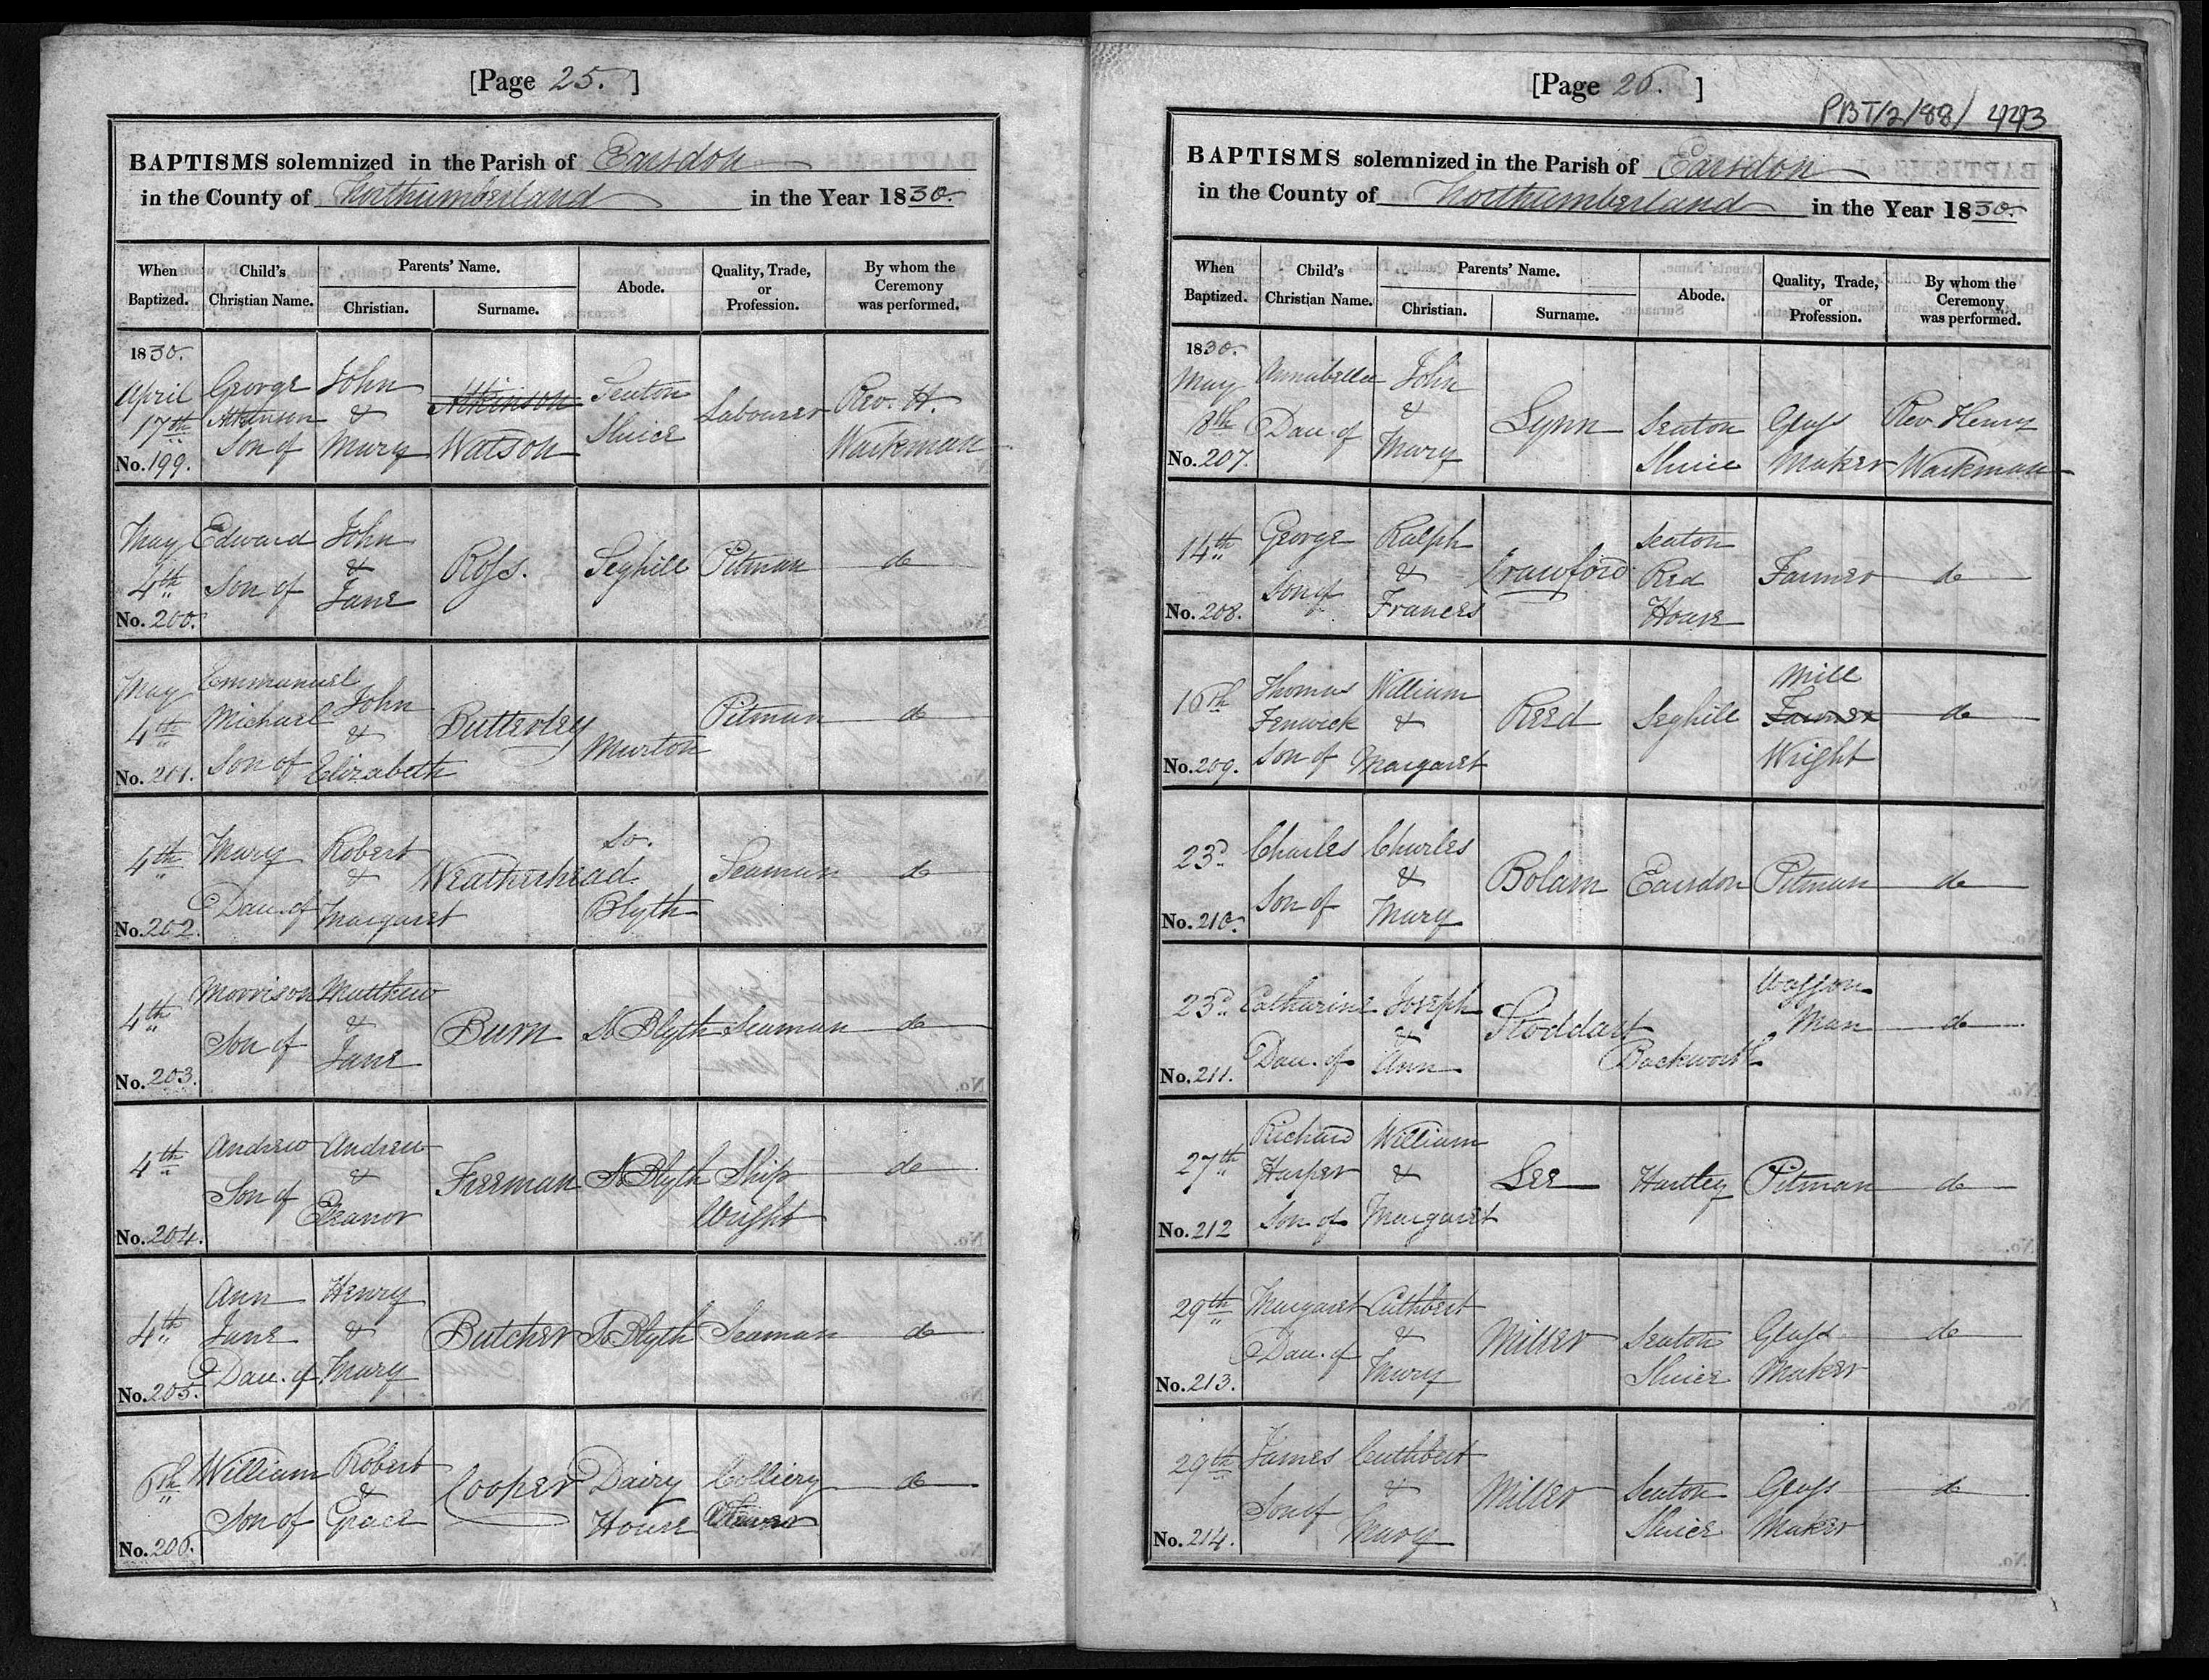 [Page 25.]
BAPTISMS solemnized in the Parish of Earsdon
in the County of Northumberland in the Year 1830.
When Baptized. Child's Christian Name. Parents' Name. Christian. Surname. Abode. Quality, Trade, or Profession. By whom the Ceremony was performed.
1830.
April 17th No. 199. George Atkinson Son of John & Mary Atkinson Watson Seaton Sluice Labourer Rev. H. Warkman
May 4th No. 200. Edward Son of John & Jane Ross. Seghill Pitman do
May 4th No. 201. Emmanuel Michael Son of John & Elizabeth Butterley Murton Pitman do
4th No. 202. Mary Dau. of Robert & Margaret Weatherhead So. Blyth Seaman do
4th No. 203. Morrison Son of Matthew & Jane Burn So Blyth Seaman do
4th No. 204. Andrew Son of Andrew & Eleanor Freeman So Blyth Ship Wright do
4th No. 205. Ann Jane Dau. of Henry & Mary Butcher So Blyth Seaman do
6th No. 206. William Son of Robert & Grace Cooper Dairy House Colliery Viewer do
[Page 26.]
PBT/2/88/443
BAPTISMS solemnized in the Parish of Earsdon
in the County of Northumberland in the Year 1830.
When Baptized. Child's Christian Name. Parents' Name. Christian. Surname. Abode. Quality, Trade, or Profession. By whom the Ceremony was performed.
1830.
May 8th No. 207. Annabella Dau. of John & Mary Lynn Seaton Sluice Glass Maker Rev Henry Warkman
14th No. 208. George Son of Ralph & Frances Crawford Seaton Red House Farmer do
16th No. 209. Thomas Fenwick Son of William & Margaret Reed Seghill Mill Farmer Wright do
23d. No. 210. Charles Son of Charles & Mary Bolam Earsdon Pitman do
23d. No. 211. Catharine Dau. of Joseph & Ann Stoddart Backworth Waggon Man do
27th No. 212 Richard Harper Son of William & Margaret Lee Hartley Pitman do
29th No. 213. Margaret Dau. of Cuthbert & Mary Miller Seaton Sluice Glass Maker do
29th No. 214. James Son of Cuthbert & Mary Miller Seaton Sluice Glass Maker do